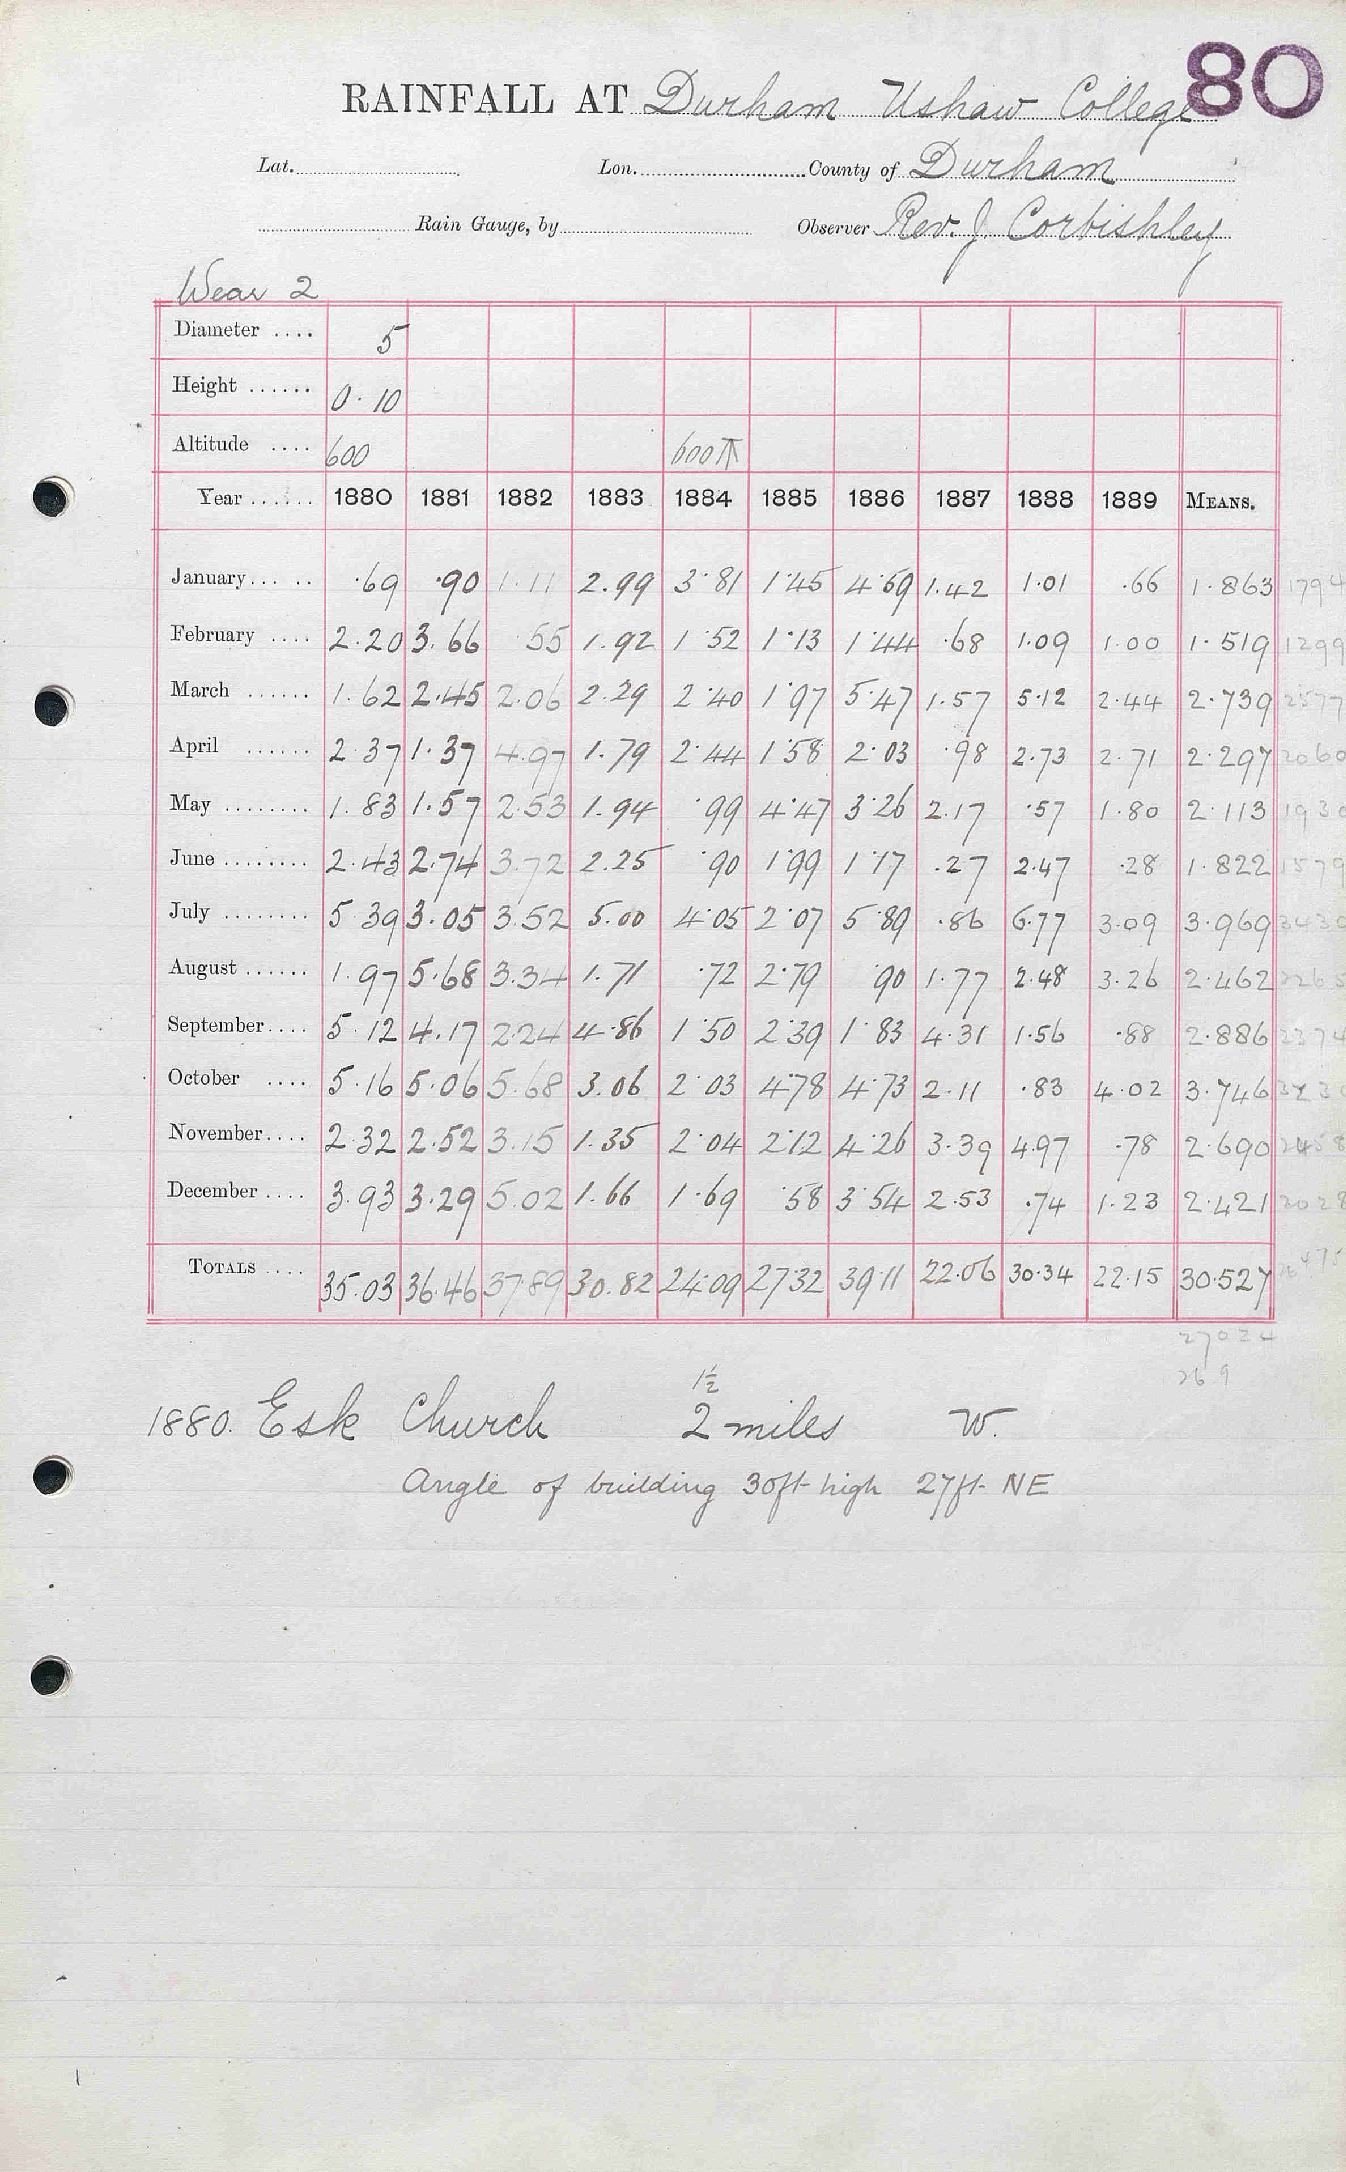 80
RAINFALL AT Durham Ushaw College
Lat. Lon. County of Durham
Rain Gauge, by Observer Rev. J. Corbishley
Wear 2
Diameter .... 5
Height ...... 0.10
Altitude .... 600 600
Year ...... 1880 1881 1882 1883 1884 1885 1886 1887 1888 1889 MEANS.
January ... .. .69 .90 1.11 2.99 3.81 1.45 4.59 1.42 1.01 .66 1.863 1794
February .... 2.20 3.66 .55 1.92 1.52 1.13 1.44 .68 1.09 1.00 1.519 1299
March ...... 1.62 2.45 2.06 2.29 2.40 1.97 5.47 1.57 5.12 2.44 2.739 2577
April ...... 2.37 1.37 4.97 1.79 2.44 1.58 2.03 .98 2.73 2.71 2.297 2060
May ........ 1.83 1.57 2.53 1.94 .99 4.47 3.26 2.17 .57 1.80 2.113 1930
June ........ 2.43 2.74 3.72 2.25 .90 1.99 1.17 .27 2.47 .28 1.822 1579
July ........ 5.39 3.05 3.52 5.00 4.05 2.07 5.89 .86 6.77 3.09 3.969 3430
August ...... 1.97 5.68 3.34 1.71 .72 2.79 .90 1.77 2.48 3.26 2.462 2265
September .... 5.12 4.17 2.24 4.86 1.50 2.39 1.83 4.31 1.56 .88 2.886 2374
October .... 5.16 5.06 5.68 3.06 2.03 4.78 4.73 2.11 .83 4.02 3.746
November .... 2.32 2.52 3.15 1.35 2.04 2.12 4.26 3.39 4.97 .78 2.690
December .... 3.93 3.29 5.02 1.66 1.69 .58 3.54 2.53 .74 1.23 2.421 2028
TOTALS .... 35.03 36.46 37.89 30.82 24.09 27.32 39.11 22.06 30.34 22.15 30.527
27024
26.9
1½
1880. Esk Church 2 miles W.
Angle of building 30ft high 27ft NE